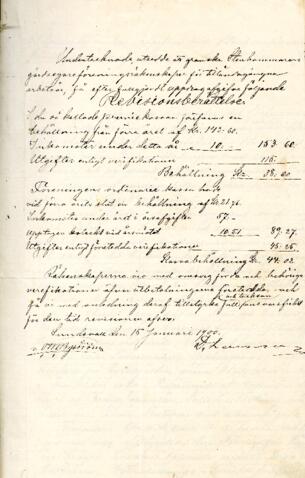 Undertecknade utsedde att granska Stenhammarens
gårdsegareförenings räkenskaper för tilländagångna
arbetsår, få efter fullgjordt uppdrag afgifva följande
Revisionsberättelse.
I den så kallade förening kassan fanns en
behållning från förra året af Kr. 143.60.
Inkomster under detta år 10. 153 60.
Utgifter enligt verifikationer 115.
Behållning Kr. 38.60
Föreningens ordinarie kassa hade
vid förra årets slut en behållning af Kr. 21.76.
Inkomster under året i årsafgifter 57.
Upptagen kollekt vid årsmötet 10.51 89.27.
Utgifter enligt företedda verifikationer 45.25.
Kassabehållning Kr. 44.02
Räkenskaperna äro med omsorg förda och behöriga
verifikationer öfver utbetalningarna företedda, och
få vi med anledning deraf tillstyrka full ansvarsfrihet
för den tid revisionen afser.
Sundsvall den 15 Januari 1900.